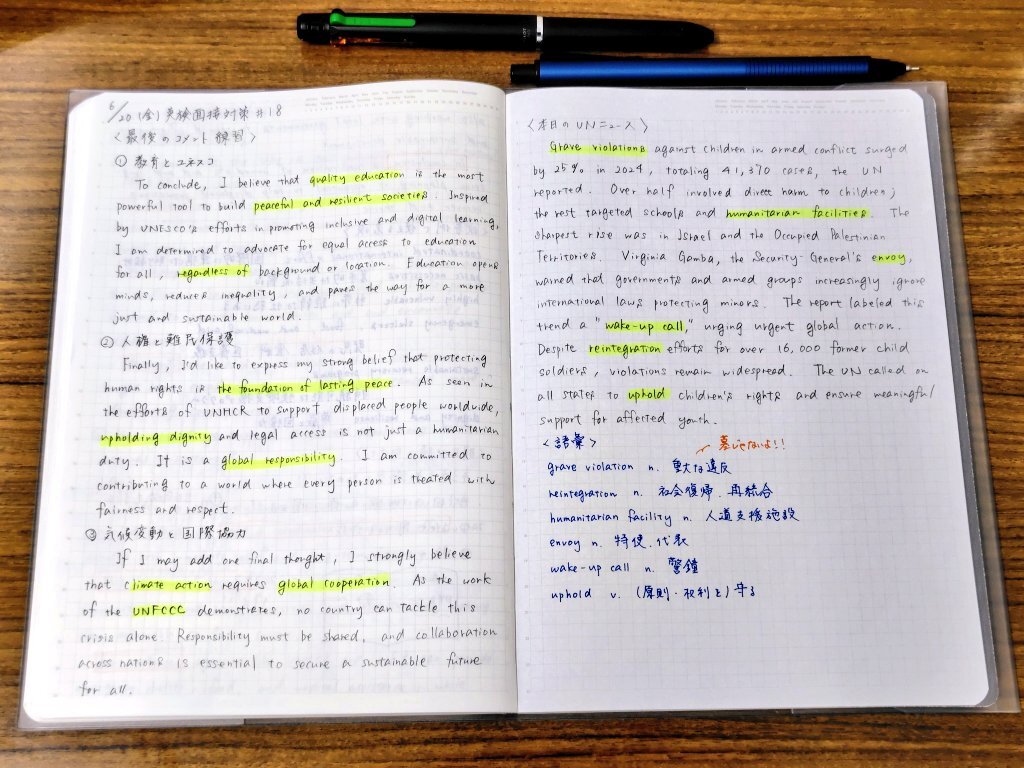 6/20 (金) 英検面接対策 #18
〈最後のコメント練習〉
① 教育とユネスコ
To conclude, I believe that quality education is the most
powerful tool to build peaceful and resilient societies. Inspired
by UNESCO's efforts in promoting inclusive and digital learning,
I am determined to advocate for equal access to education
for all, regardless of background or location. Education opens
minds, reduces inequality, and paves the way for a more
just and sustainable world.
② 人権と難民保護
Finally, I'd like to express my strong belief that protecting
human rights is the foundation of lasting peace. As seen in
the efforts of UNHCR to support displaced people worldwide,
upholding dignity and legal access is not just a humanitarian
duty. It is a global responsibility. I am committed to
contributing to a world where every person is treated with
fairness and respect.
③ 気候変動と国際協力
If I may add one final thought, I strongly believe
that climate action requires global cooperation. As the work
of the UNFCCC demonstrates, no country can tackle this
crisis alone. Responsibility must be shared, and collaboration
across nations is essential to secure a sustainable future
for all.
〈本日のUNニュース〉
Grave violations against children in armed conflict surged
by 25% in 2024, totaling 41,370 cases, the UN
reported. Over half involved direct harm to children;
the rest targeted schools and humanitarian facilities. The
sharpest rise was in Israel and the Occupied Palestinian
Territories. Virginia Gamba, the Security-General's envoy,
warned that governments and armed groups increasingly ignore
international laws protecting minors. The report labeled this
trend a "wake-up call," urging urgent global action.
Despite reintegration efforts for over 16,000 former child
soldiers, violations remain widespread. The UN called on
all states to uphold children's rights and ensure meaningful
support for affected youth.
〈語彙〉
墓じゃないよ!!
grave violation n. 重大な違反
reintegration n. 社会復帰、再統合
humanitarian facility n. 人道支援施設
envoy n. 特使、代表
wake-up call n. 警鐘
uphold v. (原則・権利を)守る